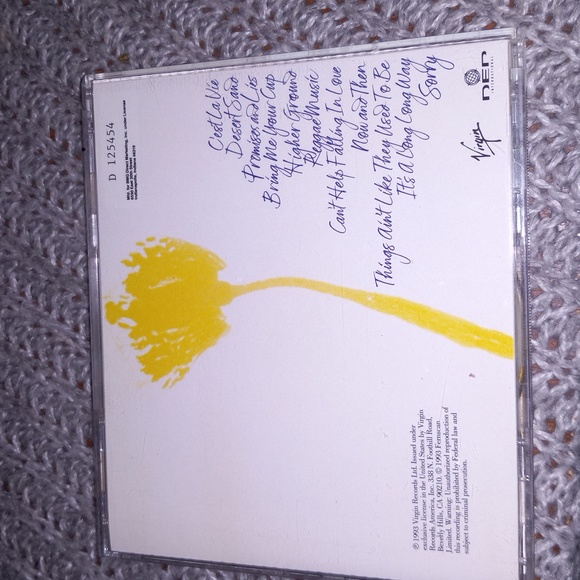 D 125454
Mfd. for BMG Direct Marketing, Inc. under License
6550 East 30th Street
Indianapolis, Indiana 46219
C'est La Vie
Desert Sand
Promises and Lies
Bring Me Your Cup
Higher Ground
Reggae Music
Can't Help Falling In Love
Now and Then
Things Ain't Like They Used To Be
It's A Long Long Way
Sorry
℗ 1993 Virgin Records Ltd. Issued under
exclusive license in the United States by Virgin
Records America, Inc. 338 N. Foothill Road,
Beverly Hills, CA 90210. © 1993 Femscan
Limited. Warning: Unauthorised reproduction of
this recording is prohibited by Federal law and
subject to criminal prosecution.
Virgin
DEP
INTERNATIONAL